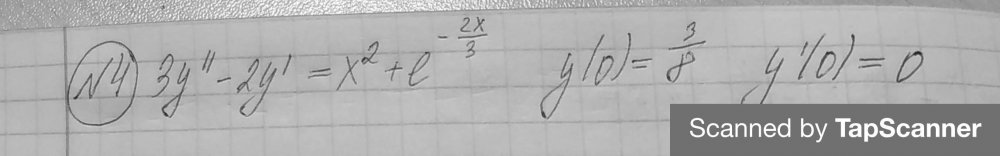 №4 3y'' - 2y' = x² + e^(-2x/3) y(0) = 3/8 y'(0) = 0
Scanned by TapScanner